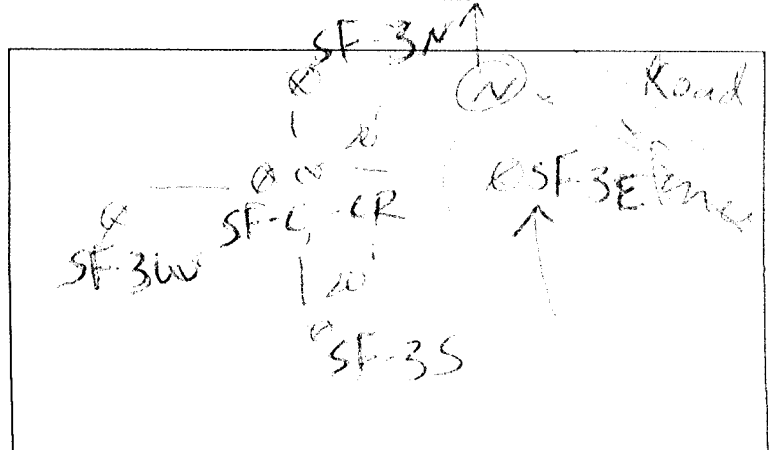 SF-3N
N
Road
20'
SF-3E
SF-C, -CR
SF-3W
20'
SF-3S